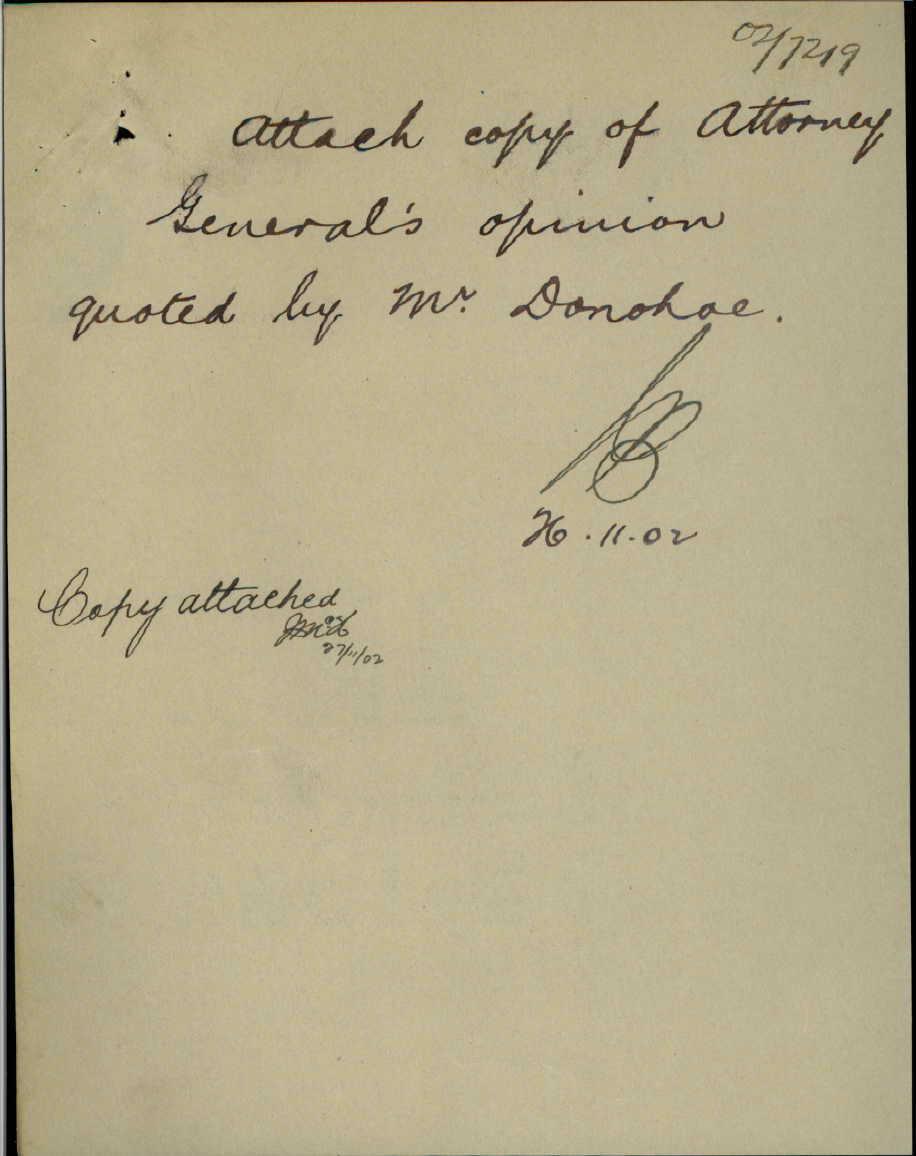 02/7219
Attach copy of Attorney
General's opinion
quoted by Mr. Donohoe.
26.11.02
Copy attached
27/11/02